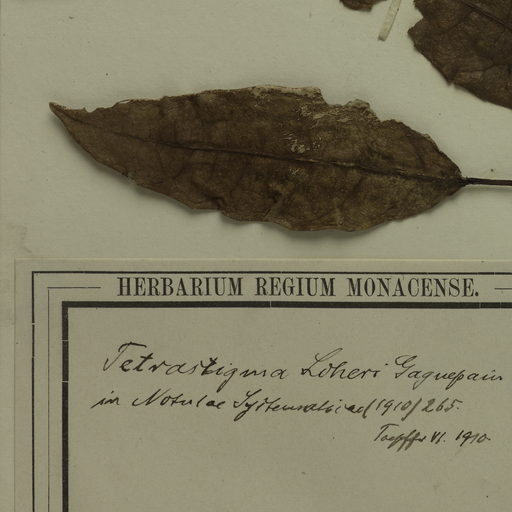 HERBARIUM REGIUM MONACENSE.
Tetrastigma Loheri Gagnepain
in Notulae Systematicae (1910) 265.
Toepffer VI. 1910.